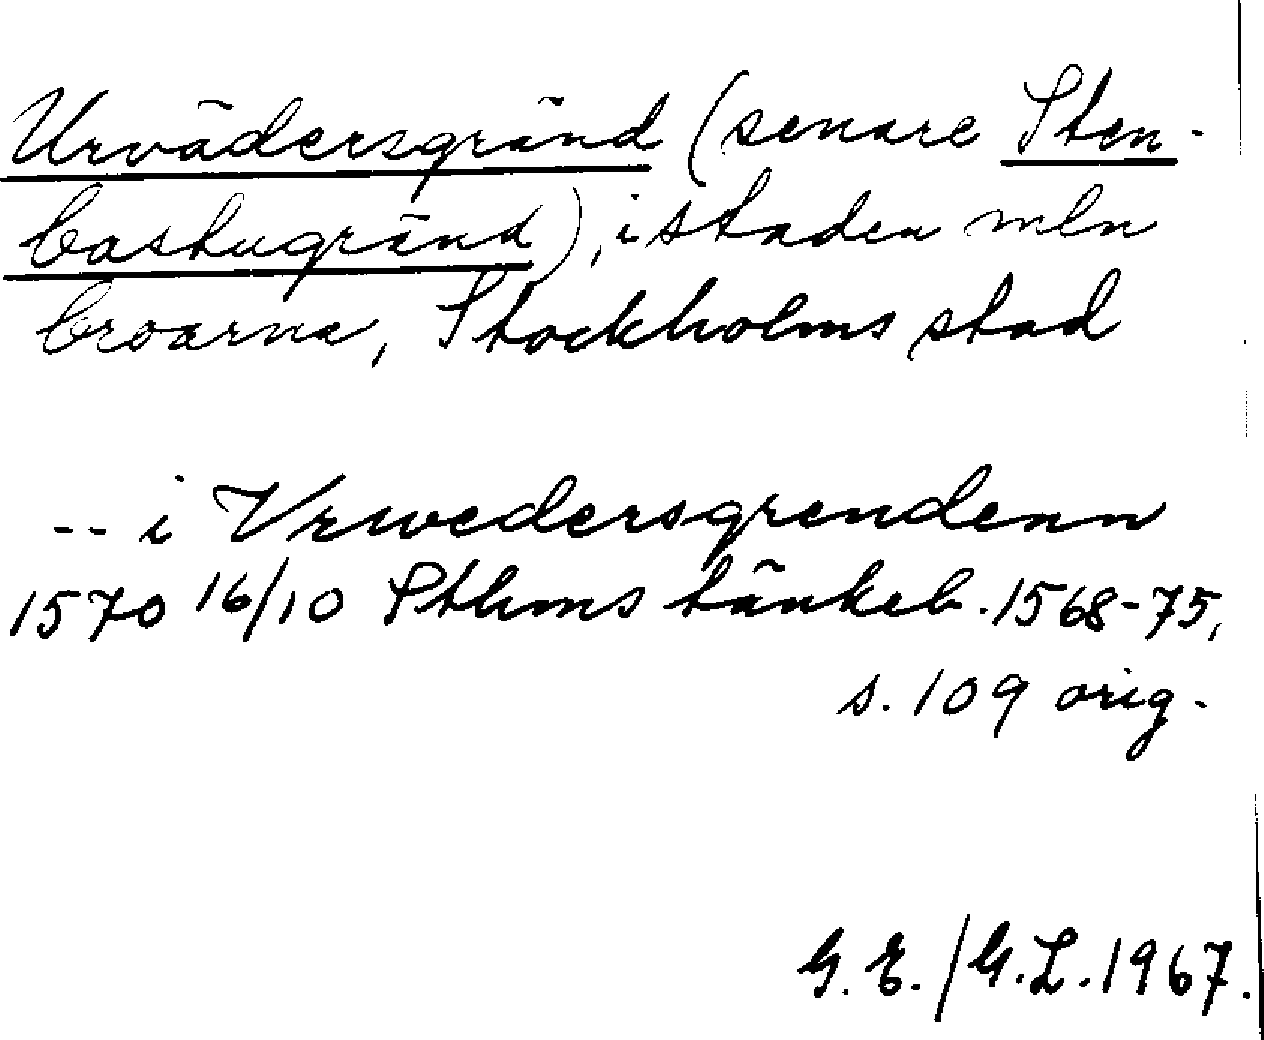 Urvädersgränd (senare Sten-
bastugränd), i staden mln
broarna, Stockholms stad
-- i Vrwedersgrendenn
1570 16/10 Sthms tänkeb. 1568-75,
s. 109 orig.
G. E. / G. L. 1967.